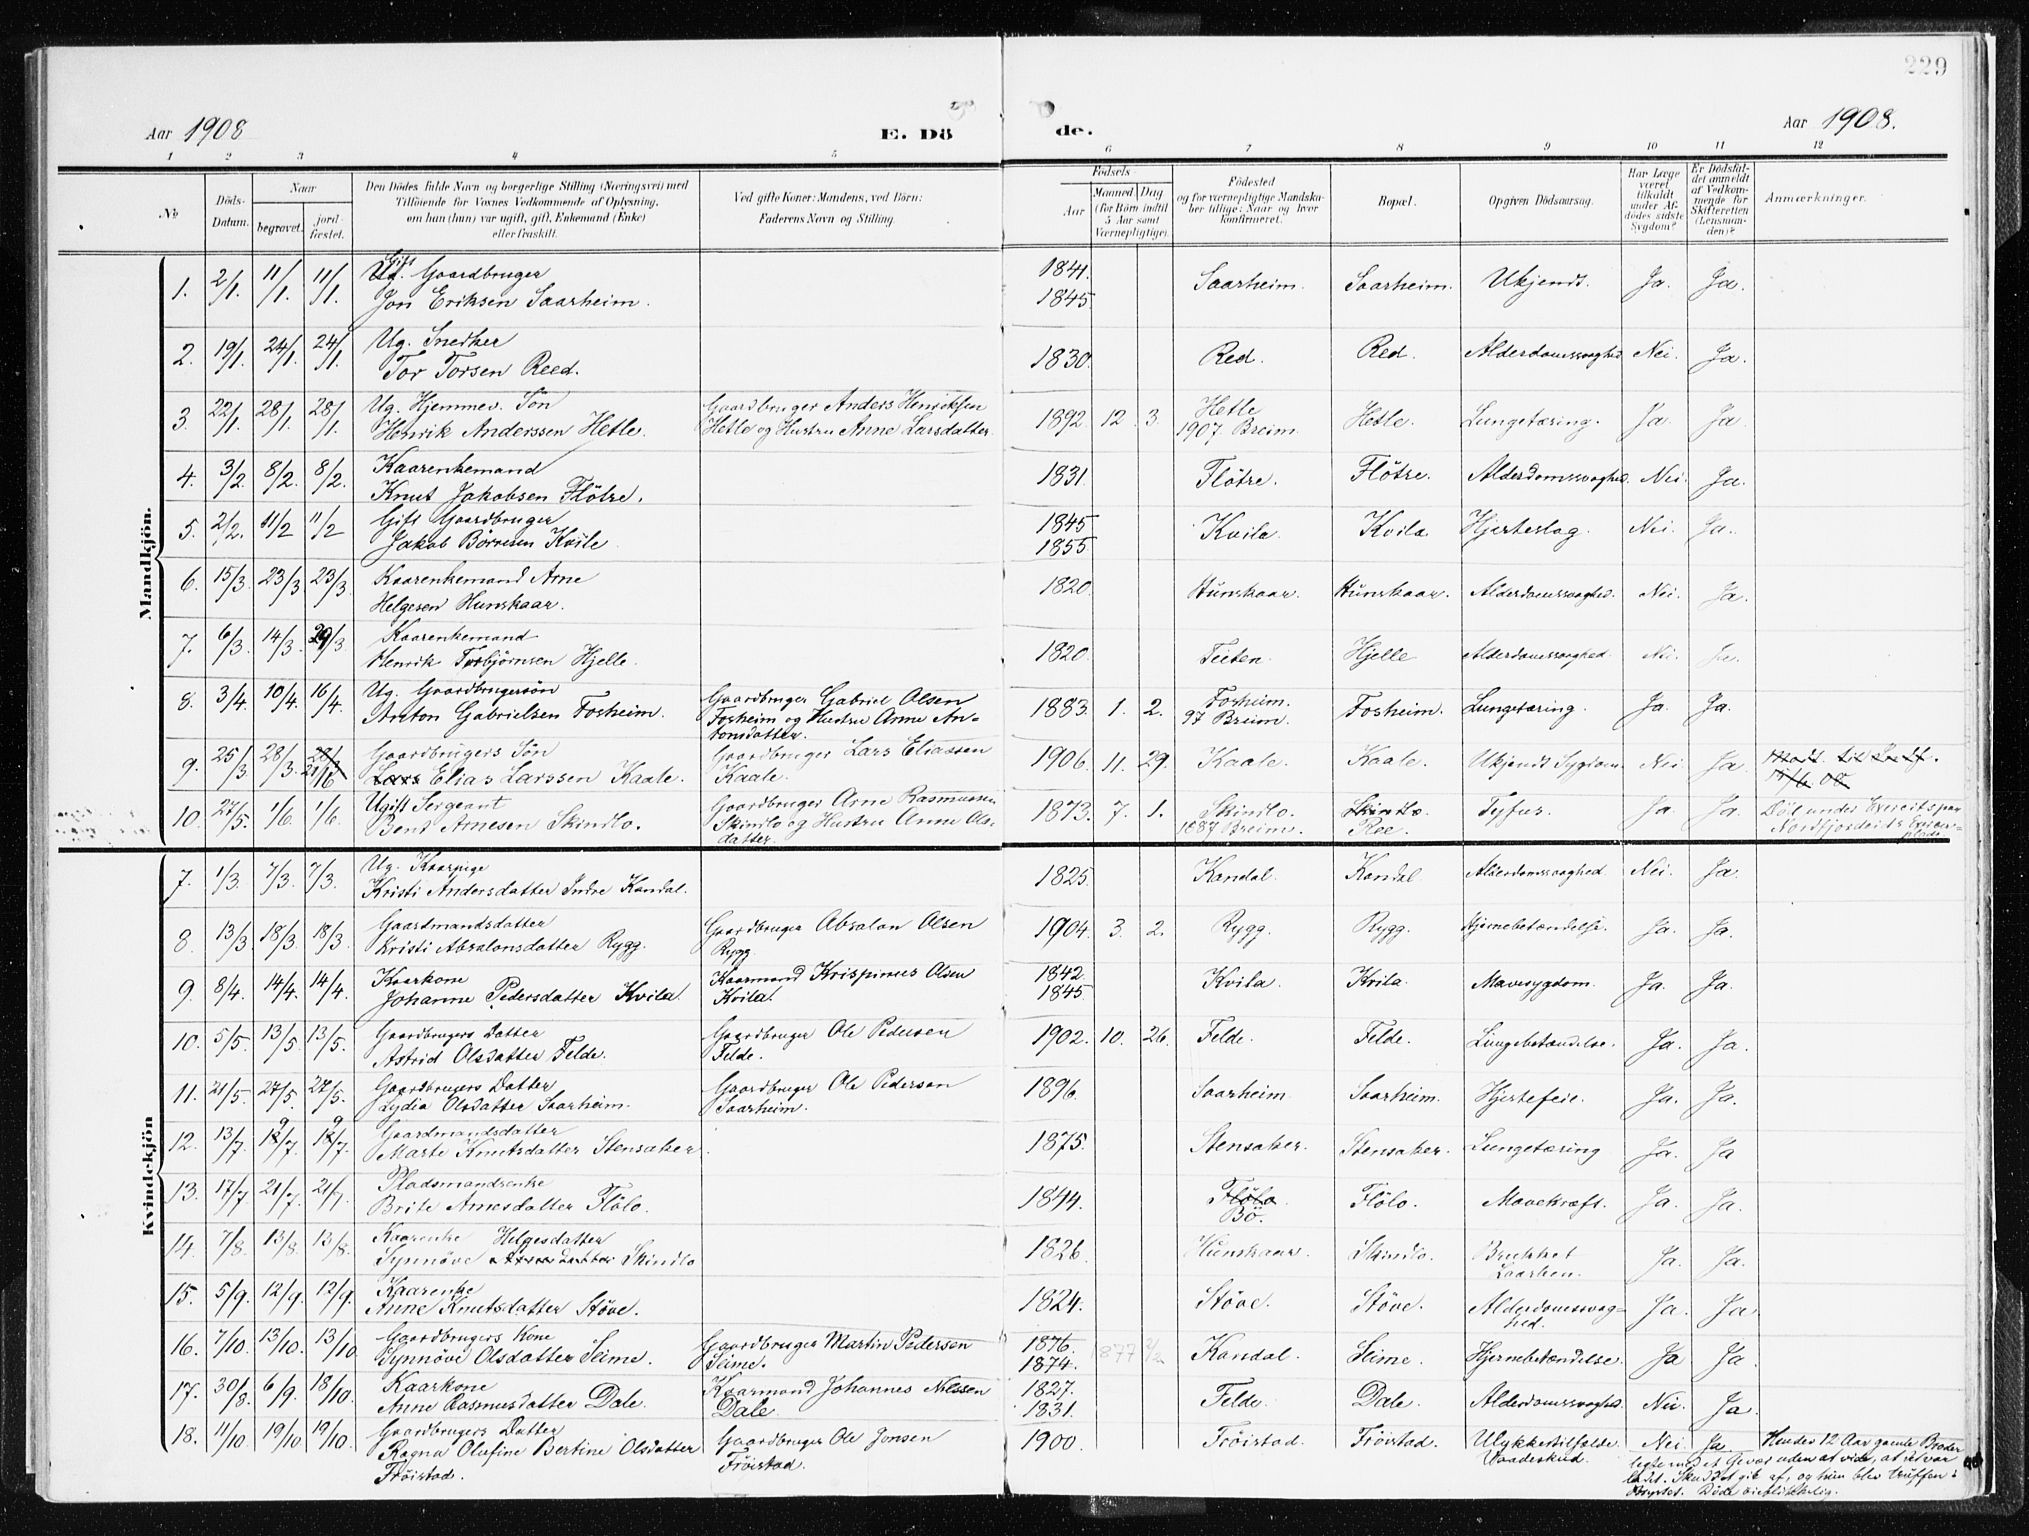 229
Aar 1908
E. Dö
de.
Aar 1908.
1 2 3 4 5 6 7 8 9 10 11 12
№
Döds-Datum.
Naar
begravet.
jord-fæstet.
Den Dödes fulde Navn og borgerlige Stilling (Næringsvei) med
Tilföiende for Voxnes Vedkommende af Oplysning,
om han (hun) var ugift, gift, Enkemand (Enke)
eller fraskilt.
Ved gifte Koner: Mandens, ved Börn:
Faderens Navn og Stilling.
Födsels
Aar
Maaned
Dag
(for Börn indtil
5 Aar samt
Værnepligtige).
Födested
og for værnepligtige Mandska-
ber tillige: Naar og hvor
konfirmeret.
Bopæl.
Opgiven Dödsaarsag.
Har Læge
været
tilkaldt
under Af-
dödes sidste
Sygdom?
Er Dödsfal-
det anmeldt
af Vedkom-
mende for
Skifteretten
(Lensman-
den)?
Anmærkninger.
Mandkjön.
1. 2/1. 11/1. 11/1. Gift Gaardbruger 1841. Saarheim. Saarheim. Ukjendt. Ja. Ja.
Jon Eriksen Saarheim. 1845
2. 19/1. 24/1. 24/1. Ug. Snedker
Tor Torsen Reed. 1830. Red. Red. Alderdomssvaghed Nei. Ja.
3. 22/1. 28/1. 28/1. Ug. Hjemmev. Sön Gaardbruger Anders Henriksen Hetle
Henrik Anderssen Hetle. Hetle og Hustru Anne Larsdatter. 1892 12 3. 1907. Breim. Hetle. Lungetæring. Ja Ja.
4. 3/2. 8/2. 8/2. Kaarenkemand
Knut Jakobsen Flötre. 1831. Flötre. Flötre. Alderdomssvaghed. Nei. Ja.
5. 2/2. 11/2 11/2 Gift Gaardbruger 1845 Kvila. Kvila Hjerteslag. Nei. Ja.
Jakob Börresen Kvile. 1855
6. 15/3. 23/3 23/3 Kaarenkemand Arne
Helgesen Hunskaar. 1820. Hunskaar. Hunskaar. Alderdomssvaghed. Nei. Ja.
7. 6/3. 14/3. 29/3 Kaarenkemand
Henrik Torbjörnsen Hjelle. 1820. Teiten. Hjelle Alderdomssvaghed. Nei. Ja.
8. 3/4. 10/4. 16/4. Ug. Gaardbrugersön Gaardbruger Gabriel Olsen Fosheim.
Anton Gabrielsen Fosheim. Fosheim og Hustru Anne An- 1883. 1. 2. 97 Breim. Fosheim. Lungetæring. Ja. Ja.
tonsdatter.
9. 25/3. 28/3. 28/3 21/6 Gaardbrugers Sön Gaardbruger Lars Eliassen 1906. 11. 29. Kaale. Kaale. Ukjendt Sygdom. Nei Ja.
Lars Elias Larssen Kaale. Kaale. 15/6. 08
10. 27/5. 1/6. 1/6. Ugift Sergeant Gaardbruger Arne Rasmussen 1873. 7. 1. Skindlo. Skindlo. Tyfus. Ja. Ja. Död under Exercits paa
Bent Arnesen Skindlo. Skindlo og Hustru Anne Ols- 1887 Breim. Ree. Nordfjordeids Exercer-
datter. plads.
Kvindekjön
7. 1/3. 7/3. 7/3. Ug. Kaarpige
Kristi Andersdatter Indre Kandal. 1825. Kandal. Kandal Alderdomssvaghed. Nei. Ja.
8. 13/3. 18/3. 18/3 Gaardmandsdatter Gaardbruger Absalon Olsen
Kristi Absalonsdatter Rygg. Rygg. 1904. 3. 2. Rygg. Rygg. Hjernebetændelse. Ja. Ja.
9. 8/4. 14/4. 14/4. Kaarkone Kaarmand Krispinus Olsen 1842.
Johanne Pedersdatter Kvila. Kvila. 1845 Kvila. Kvila. Mavesygdom. Ja. Ja.
10. 5/5. 13/5. 13/5. Gaardbrugers Datter Gaardbruger Ole Pedersen
Astrid Olsdatter Felde. Felde. 1902. 10. 26. Felde. Felde. Lungebetændelse. Ja. Ja.
11. 21/5. 27/5. 27/5. Gaardbrugers Datter Gaardbruger Ole Pederson
Lydia Olsdatter Saarheim. Saarheim. 1896. Saarheim. Saarheim. Hjertefeie. Ja. Ja.
12. 13/7. 19/7. 19/7. Gaardmandsdatter
Marte Knutsdatter Stensaker. 1875. Stensaker. Stensaker. Lungetæring Ja. Ja
13. 17/7 21/7. 21/7. Pladsmandsenke Flölo
Brite Arnesdatter Flölo. 1844. Bö. Flölo. Mavekræft. Ja. Ja.
14. 7/8. 13/8. 13/8. Kaarenke Helgesdatter
Synnöve Arnesdatter Skindlo 1826. Hunskaar. Skindlo. Brukket Laarben. Ja. Ja.
15. 5/9. 12/9. 12/9. Kaarenke
Anne Knutsdatter Stöve. 1824. Stöve. Stöve. Alderdomssvag-hed. Ja. Ja
16. 7/10. 13/10. 13/10 Gaardbrugers Kone Gaardbruger Martin Pedersen 1876.
Synnöve Olsdatter Seime. Seime. 1874. 1877 2/2 Kandal. Seime. Hjernebetændelse. Ja Ja
17. 30/8. 6/9. 18/10. Kaarkone Kaarmand Johannes Nilssen 1827.
Anne Rasmusdatter Dale. Dale. 1831. Felde. Dale. Alderdomssvaghed. Nei. Ja.
18. 11/10 19/10 19/10. Gaardbrugers Datter Gaardbruger Ole Jonsen 1900. Tröistad. Tröistad. Ulykkestilfælde. Nei. Ja Hendes 12 Aar gamle Broder
Ragna Olufine Bertine Olsdatter Tröistad. Vaadeskud. legte med et Gevær uden at vide, at det var
Tröistad. ladt. Skuddet gik af, og hun blev truffen i
Brystet. Döde öieblikkelig.